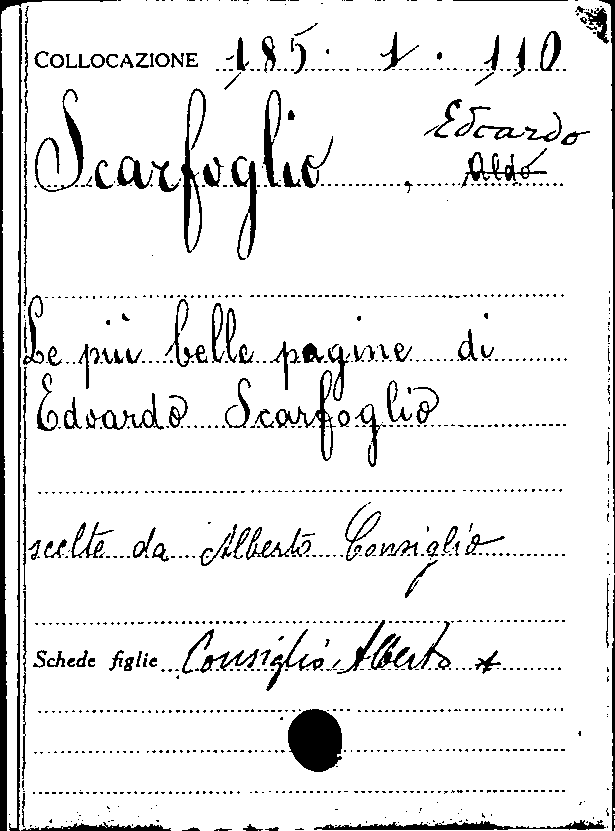 COLLOCAZIONE 185. 1. 110
Scarfoglio, Edoardo
Aldo
Le più belle pagine di
Edoardo Scarfoglio
scelte da Alberto Consiglio
Schede figlie Consiglio, Alberto *